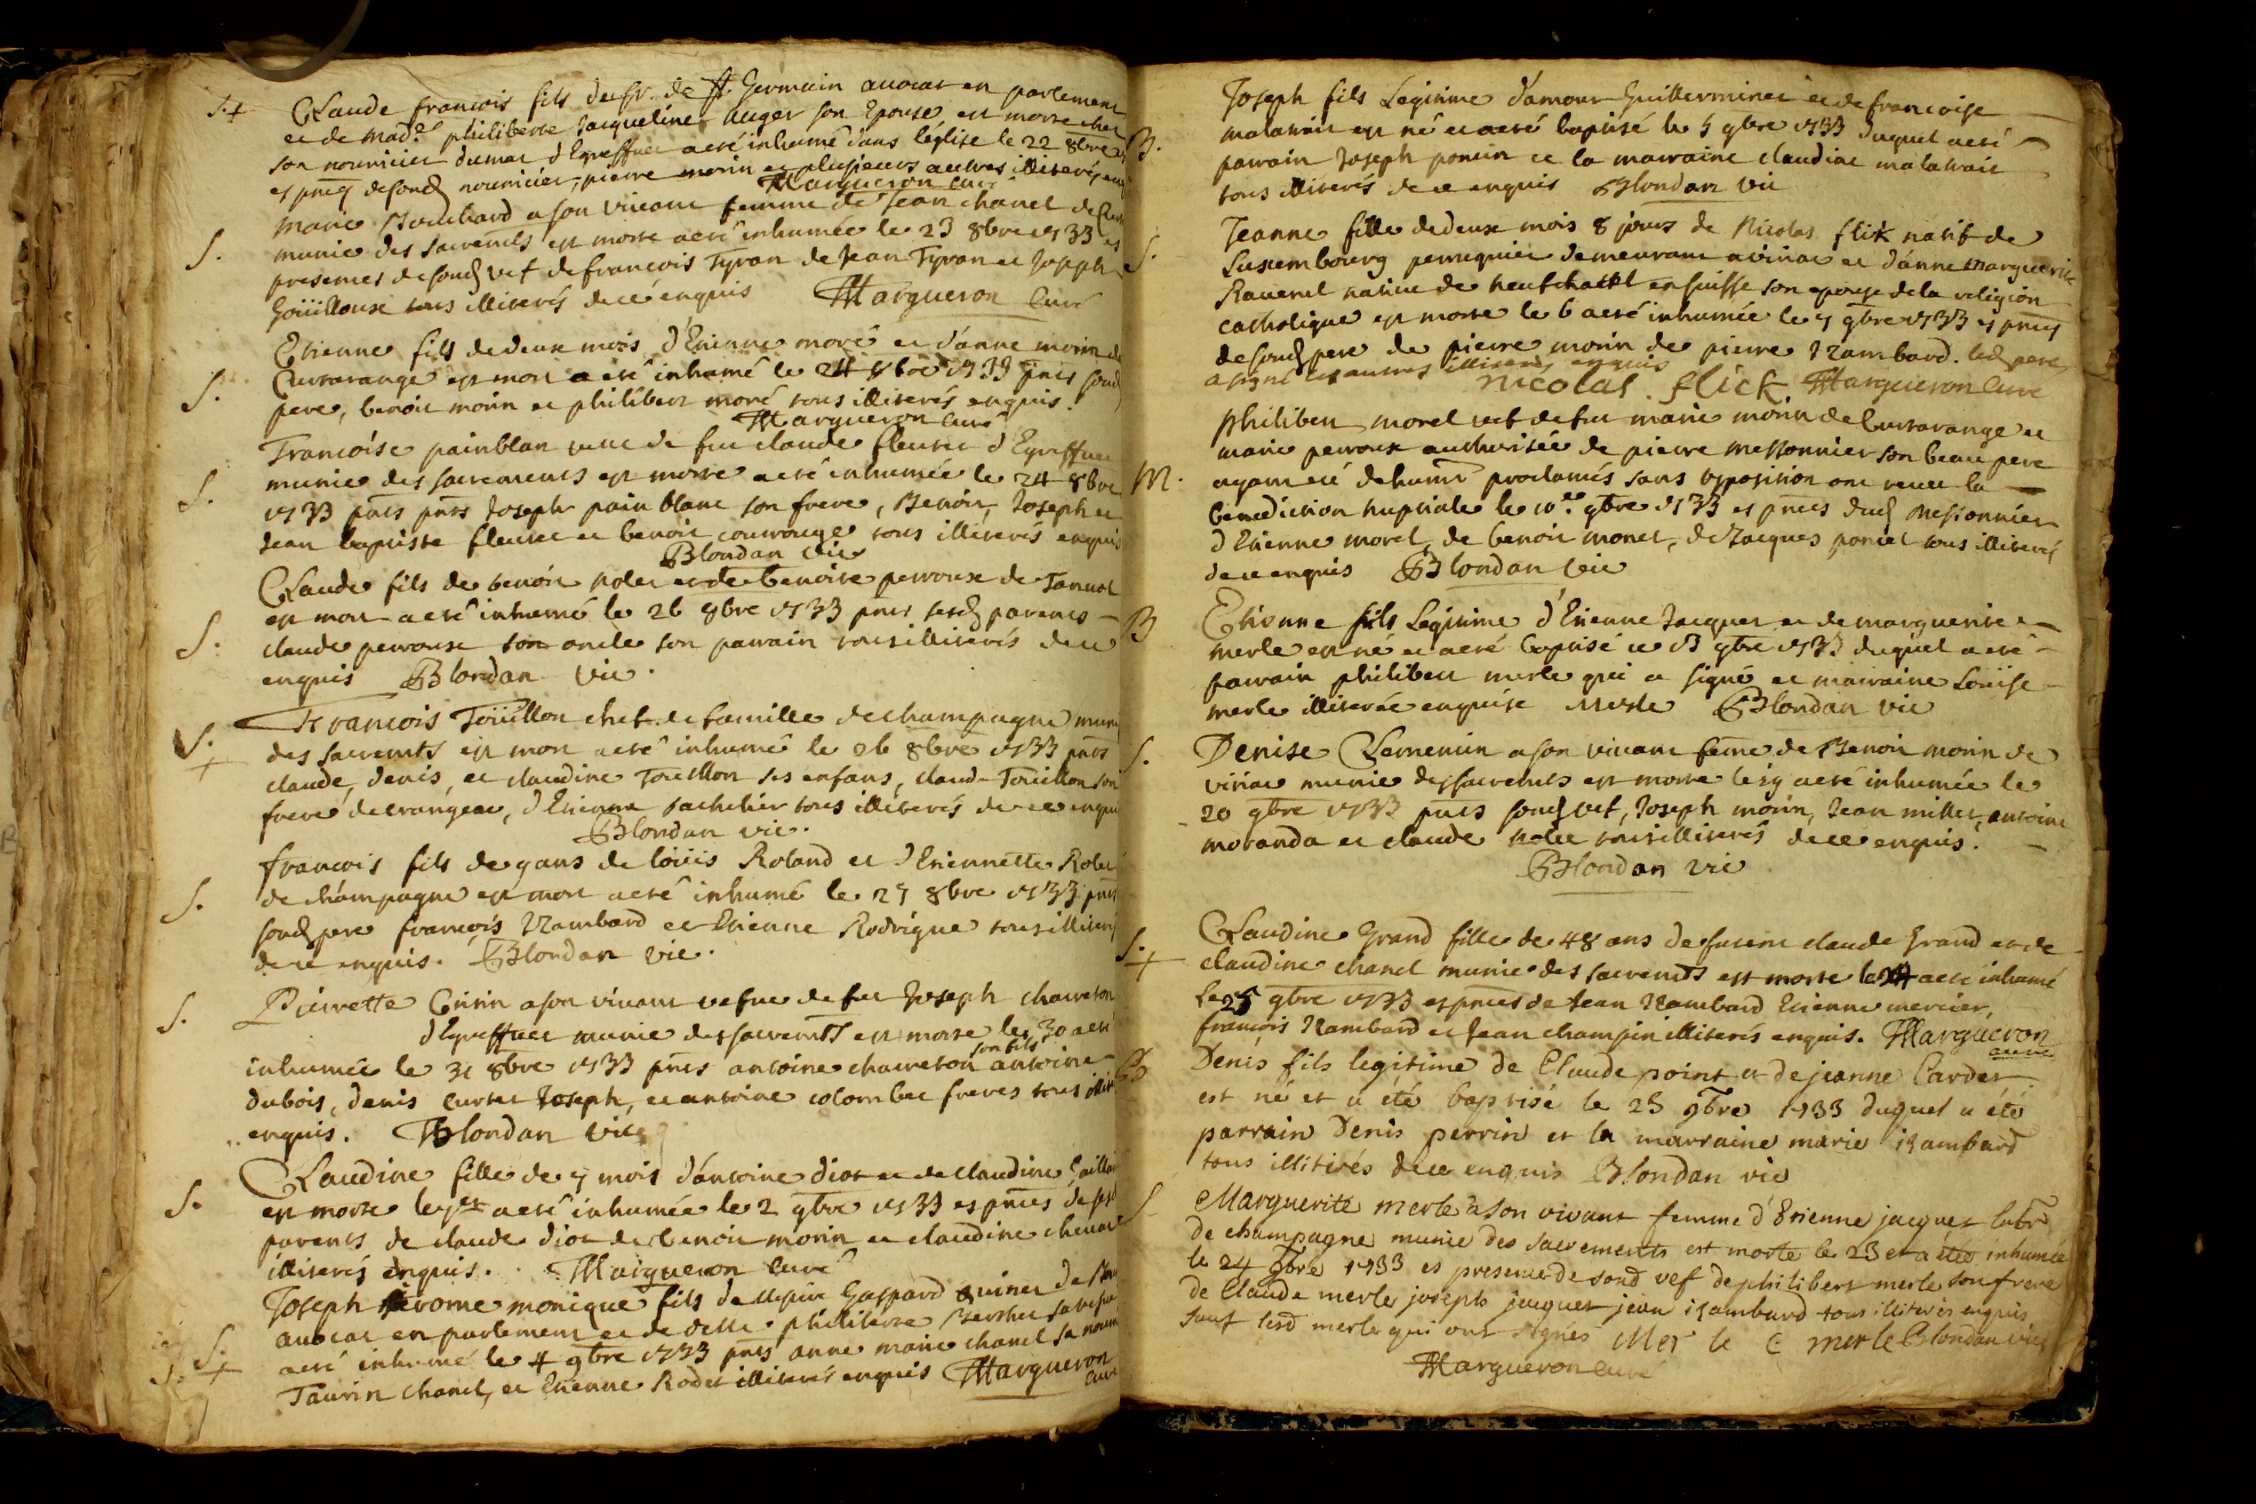 S. + Claude francois fils du Sr. de St. Germain avocat en parlement
et de Mad.e philiberte Jacqueline Auger son Epouse est morte chez
son nouricier dumas d'Egreffuel a eté inhumé dans l'eglise le 22 8bre
es pnces desond nouricier, pierre morin et plusieurs autres illiterés enq
Margueron curé
S. Marie Bouchard a son vivant femme de Jean chanel de
munie des sacremts est morte a eté inhumée le 23 8bre 1733 es
presences desond vef de francois Tyran de Jean Tyran et Joseph
Goüilloux tous illiterés de ce enquis Margueron Curé
S. Etienne fils de deux mois d'Etienne moré et d'anne morin de
Curtarange est mort a eté inhumé le 24 8bre 1733 pnts sond
pere, benoit morin et philibert moré tous illiterés enquis.
Margueron curé
S. Francoise painblan veuve de feu claude fleuret d'Egreffuel
munie des sacrements est morte a eté inhumée le 24 8bre
1733 pnts Joseph pain blanc son frere, Benoit, Joseph et
Jean baptiste fleuret et benoit courouge tous illiterés enquis
Blondan vic
S. Claude fils de benoit rolet et de benoite perroux de Tanvol
est mort a eté inhumé le 26 8bre 1733 pnts sesd parents
claude perroux son oncle son parrain tous illiterés de ce
enquis Blondan vic.
S. + Francois Toüillon chef de famille de champagne muni
des sacremts est mort a eté inhumé le 26 8bre 1733 pnts
claude, denis, et claudine Toüillon ses enfans, claude Toüillon son
frere de crangeac, d'Etienne bachelier tous illiterés de ce enquis
Blondan vic.
S. francois fils de 9 ans de loüis Roland et d'Etiennette Rolet
de champagne est mort a eté inhumé le 27 8bre 1733 pnts
sond pere francois Rambard et Etienne Rodrigue tous illiterés
de ce enquis. Blondan vic.
S. Pierrette Cusin a son vivant vefve de feu Joseph chareton
d'Egreffuel munie des sacremts est morte le 30 a eté
inhumée le 31 8bre 1733 pnts antoine chareton son fils antoine
dubois, denis curtet Joseph, et antoine colombet freres tous illit
enquis. Blondan vic
S. Claudine fille de 7 mois d'antoine diot et de claudine Jaillon
est morte le 1er a eté inhumée le 2 9bre 1733 es pnces de sesd
parents de claude diot de benoit morin et claudine
illiterés enquis. Margueron curé
S. + Joseph jerome monique fils de Messire Gaspard quinet
avocat en parlement et de delle. philiberte
a eté inhumé le 4 9bre 1733 pnts anne marie chanel sa
Taurin chanel, et Etienne Rodet illiterés enquis Margueron
curé
B. Joseph fils Legitime d'amour Guillerminet et de francoise
malatrait est né et a eté baptisé le 5 9bre 1733 duquel a eté
parrain Joseph poncin et la marraine claudine malatrait
tous illiterés de ce enquis Blondan vic
S. Jeanne fille de deux mois 8 jours de Nicolas flik natif de
Luxembourg perruquier demeurant a viriac et d'anne Marguerite
Ravenel native de neufchattel en suisse son epouse de la religion
catholique est morte le 6 a eté inhumée le 7 9bre 1733 es pnces
de sond pere de pierre morin de pierre Rambard. led pere
a signé les autres illiterés enquis
nicolas flick Margueron Curé
M. Philibert morel vef de feu marie morin de Curtarange et
marie perroux authorisée de pierre messonnier son beau pere
ayant eté dehumt proclamés sans opposition ont receu la
benediction nuptiale le 10.e 9bre 1733 es pnces dud messonnier
d'Etienne morel, de benoit monet, de Jacques poncet tous illiterés
de ce enquis Blondan vic
B Etienne fils Legitime d'Etienne Jacquet et de marguerite
merle est né et a eté baptisé ce 13 9bre 1733 duquel a eté
parrain philibert merle qui a signé et mairaine Loüise
merle illiterée enquise Merle Blondan vic
S. Denise Clementin a son vivant feme de Benoit morin de
viriac munie des sacremts est morte le 19 a eté inhumée le
20 9bre 1733 pnts sond vef, Joseph morin, Jean millet, antoine
moranda et claude rolet tous illiterés de ce enquis.
Blondan vic
S. + Claudine Grand fille de 48 ans de furent claude Grand et de
claudine chanel munie des sacremts est morte le 24 a eté inhumé
Le 25 9bre 1733 es pnces de Jean Rambard Etienne mercier
francois Rambard et Jean champin illiterés enquis. Margueron
curé
B Denis fils legitime de Claude point et de jeanne Cardet
est né et a été baptisé le 23 9bre 1733 duquel a été
parrain Denis perrin et la marraine marie Rambard
tous illitirés de ce enquis Blondan vic
S Marguerite merle a son vivant femme d'Etienne jacquet labr
de champagne munie des sacrements est morte le 23 et a été inhumée
le 24 9bre 1733 es presence de sond vef de philibert merle son frere
de Claude merle joseph jacquet jean Rambard tous illiterés enquis
sauf lesd merle qui ont signés Merle C merle Blondan vic
Margueron curé